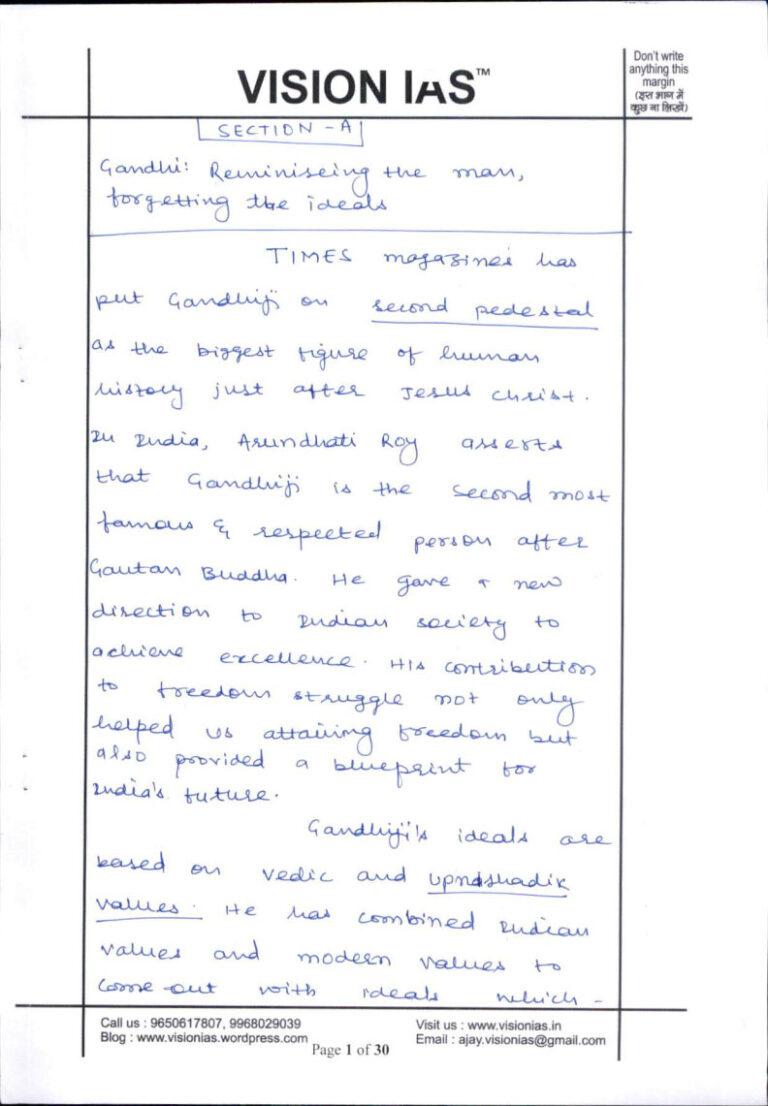 Don't write
anything this
margin
(इस भाग में
कुछ ना लिखें)
VISION IAS™
SECTION - A
Gandhi: Reminiseing the man,
forgetting the ideals
TIMES magazines has
put Gandhiji on second pedestal
as the biggest figure of human
history just after Jesus Christ.
In India, Arundhati Roy asserts
that Gandhiji is the second most
famous & respected person after
Gautan Buddha. He gave a new
direction to Indian society to
achieve excellence. His contribution
to freedom struggle not only
helped us attaining freedom but
also provided a blueprint for
India's future.
Gandhiji's ideals are
based on vedic and upnishadik
values. He has combined Indian
values and modern values to
come out with ideals which -
Call us : 9650617807, 9968029039
Blog : www.visionias.wordpress.com
Visit us : www.visionias.in
Email : ajay.visionias@gmail.com
Page 1 of 30